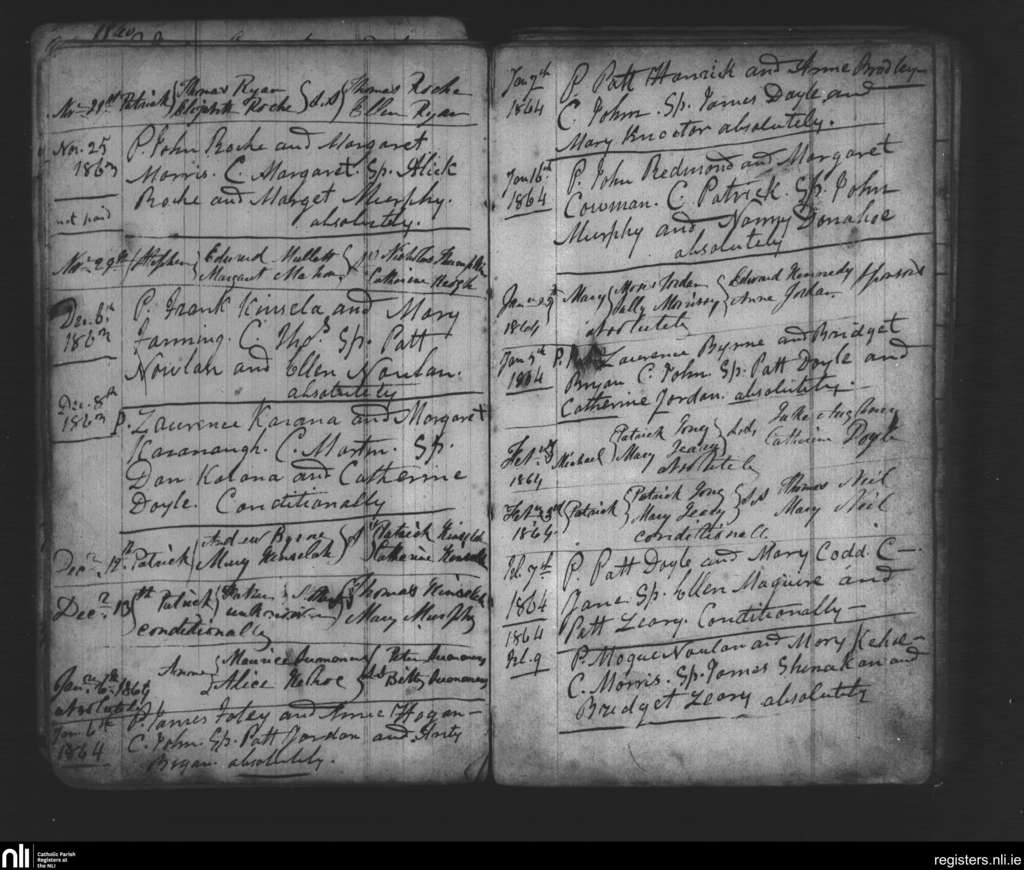 1840
Nov. 21st Patrick { Thomas Ryan } S.S { Thomas Roche
Elizabeth Roche Ellen Ryan
Nov. 25 P. John Roche and Margaret
1863 Morris. C. Margaret. Sp. Alick
not paid Roche and Marget Murphy.
absolutely.
Nov. 29th Stephen { Edward Mullett Nicholas
Margaret Catherine
Dec. 6th P. Frank Kinsela and Mary
1863 Fanning. C. Thos. Sp. Patt
Nowlan and Ellen Nowlan.
absolutely
Dec. 8th P. Lawrence Kavana and Margaret
1863 Kavanaugh. C. Martin. Sp.
Dan Kavana and Catherine
Doyle. Conditionally
Decr. Patrick { Andrew Byrne Patrick Kinselah
Mary Kinselah Catharine
Decr. 13th Patrick { unknown } { Thomas Kinselah
conditionally Mary Murphy
Jany. 6th 1864 Anne { Maurice } S.S { Peter
Absolutely Alice Kehoe Betty
Jan. 6th P. James Foley and Anne Hogan
1864 C. John. Sp. Patt Jordan and Anty
Bryan. absolutely.
Jan 7th P. Patt Hanrick and Anne Bradley
1864 C. John. Sp. James Doyle and
Mary absolutely.
Jan 16th P. John Redmond and Margaret
1864 Cowman. C. Patrick. Sp. John
Murphy and Nanny Donahoe
absolutely
Jany. Mary { Jordan } { Edward Kennedy Sponsors
1864 Sally Morrisy Anne Jordan
absolutely
Jan P. Lawrence Byrne and Bridget
1864 Bryan C. John. Sp. Patt Doyle and
Catherine Jordan. absolutely.
Feb. Michael { Patrick
1864 Mary Catherine Doyle
absolutely
Feb. Patrick { Patrick } S.S Thomas Neil
1864. Mary Mary Neil
conditionall.
Feb. 7th P. Patt Doyle and Mary Codd. C
1864 Jane. Sp. Ellen Maguire and
Patt Leary. Conditionally
1864
Feb. 9 P. Mogue Nowlan and Mary Kehoe
C. Morris. Sp. James and
Bridget Leary absolutely
nli Catholic Parish
Registers at
the NLI
registers.nli.ie